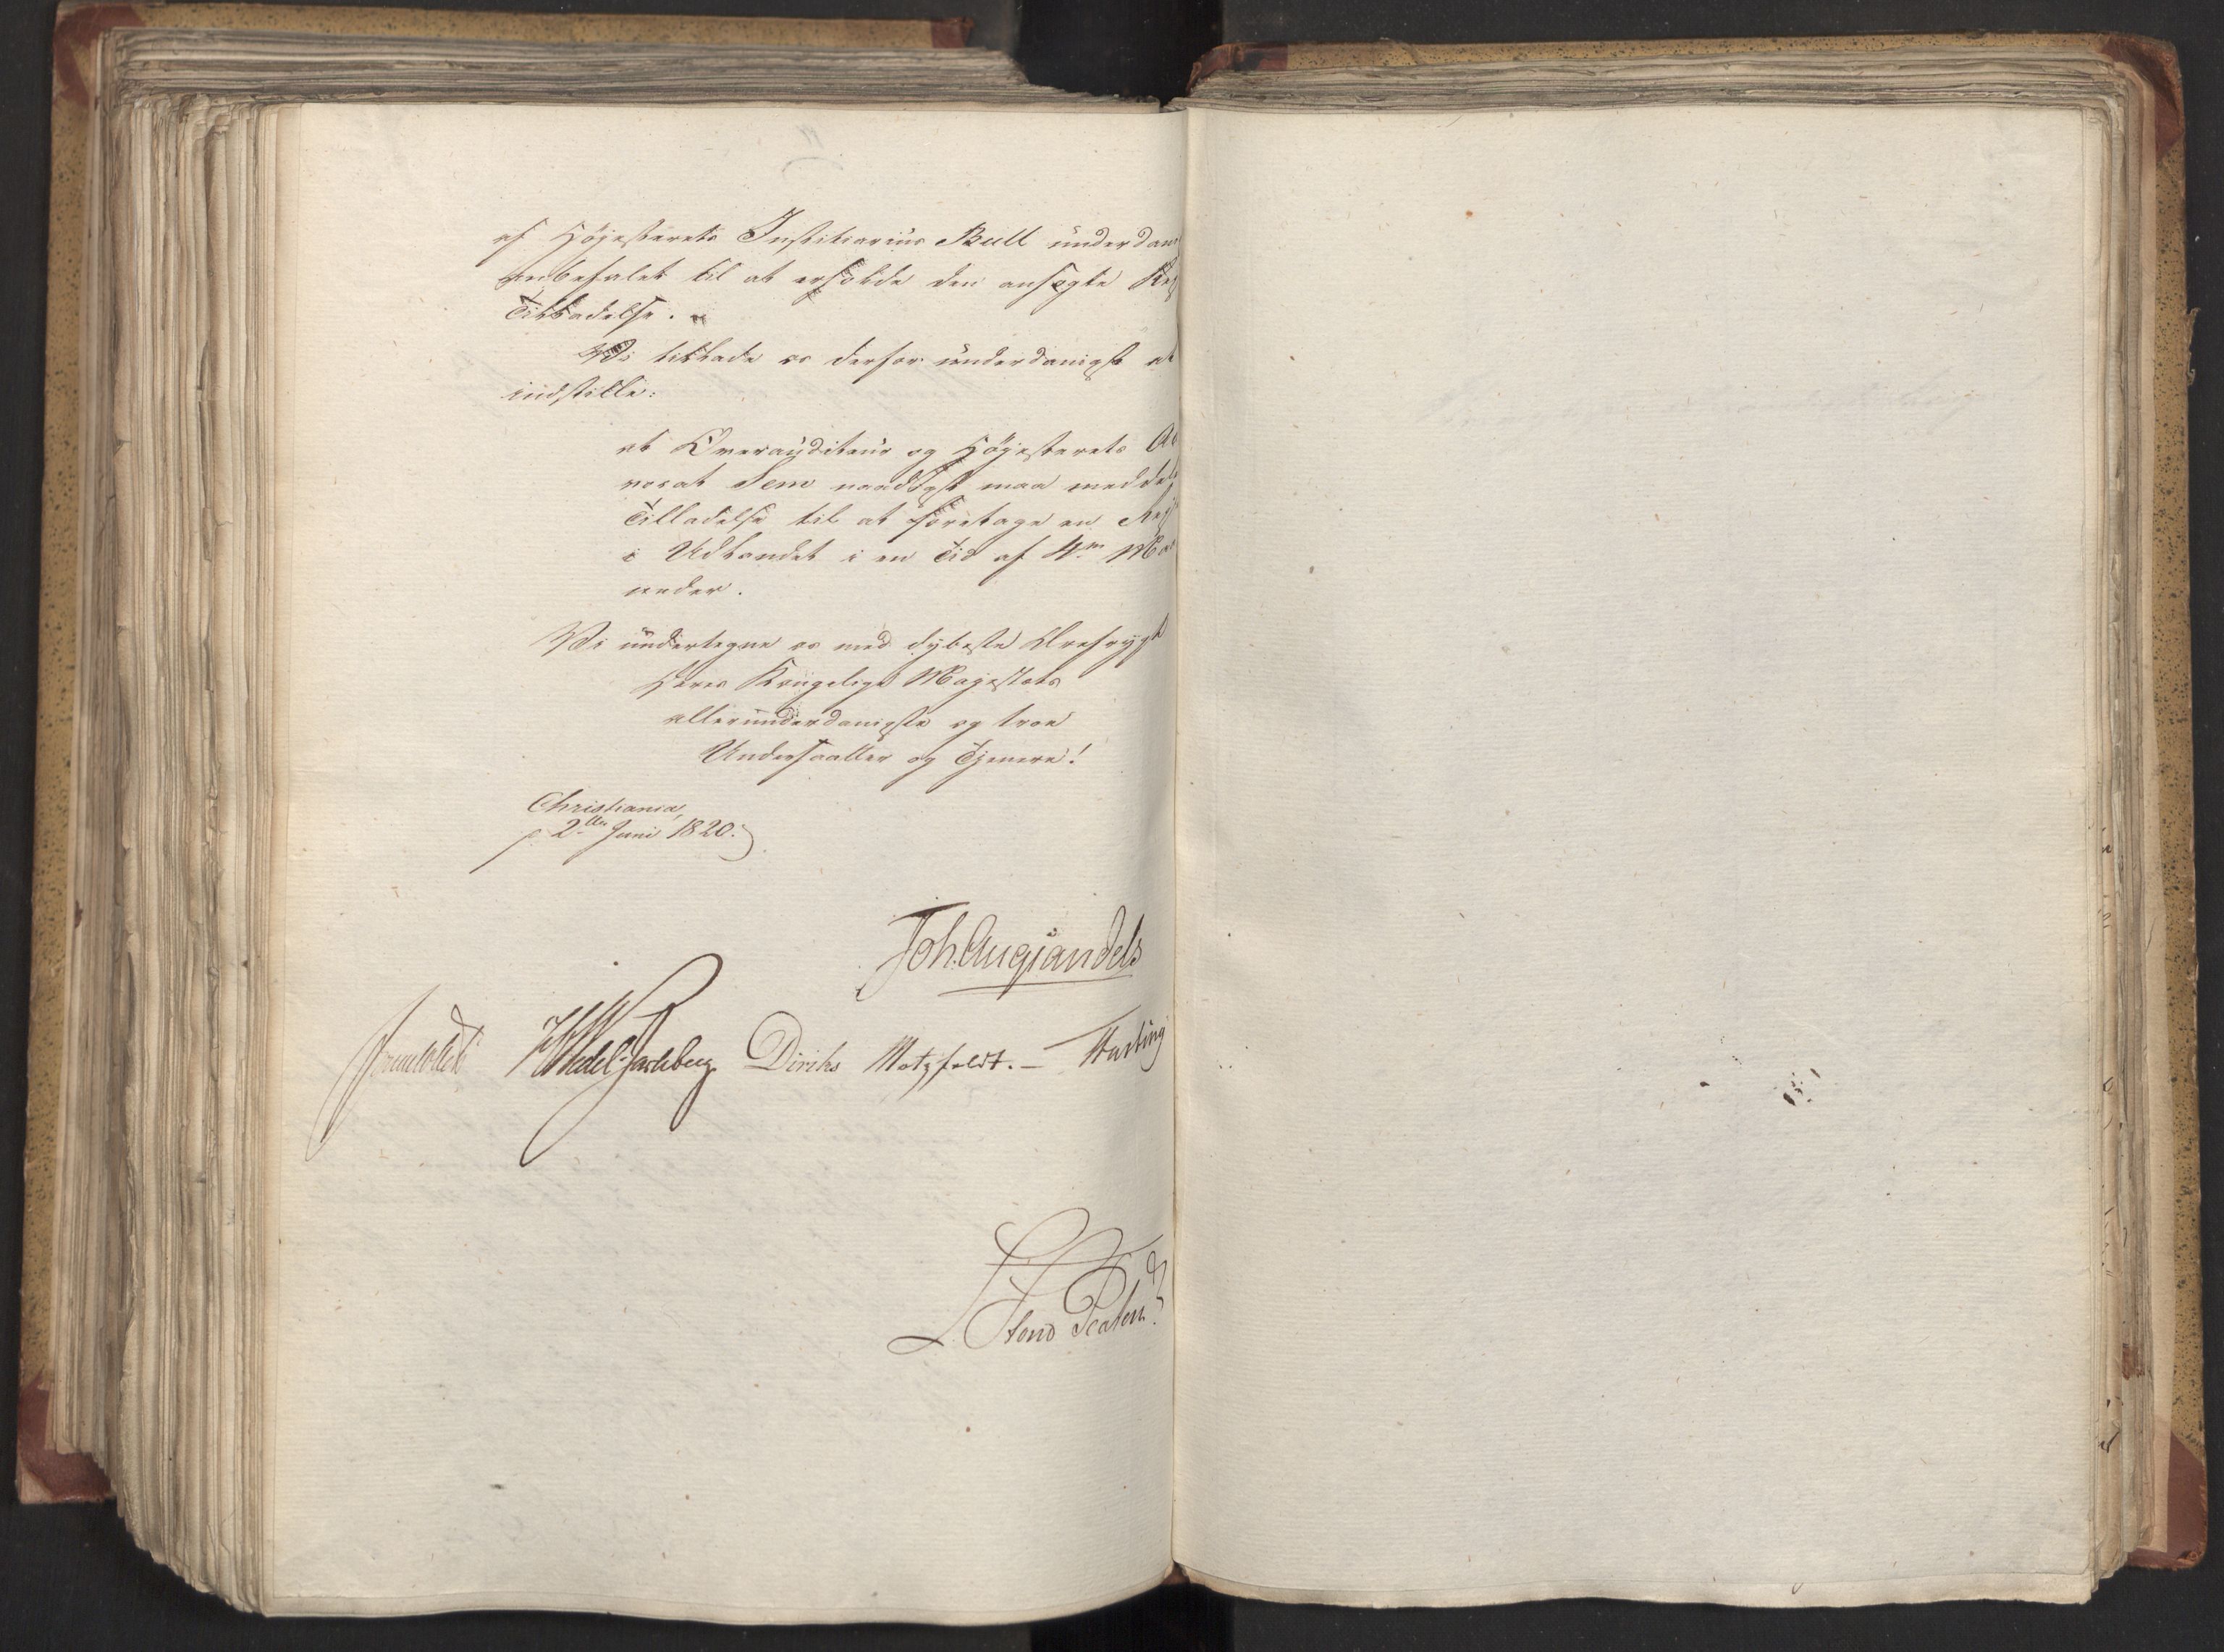 af Højesterets Justitiarius Bull underdan
anbefalet til at erholde den ansøgte Rej
Tilladelse.
Vi tillade os derfor underdanigst at
indstille:
at Overauditeur og Højesterets Ad
vocat Sem naadigst maa meddele
Tilladelse til at foretage en Rejse
i Udlandet i en Tid af 4re Maa
neder.
Vi undertegne os med dybeste Ærefrygt
Deres Kongelige Majestæts
allerunderdanigste og troe
Undersaatter og Tjenere!
Christiania,
2den Juni 1820.
Joh. Aug Sandels
Sommerfeldt HWedel-Jarlsberg Diriks Motzfeldt. - Fasting